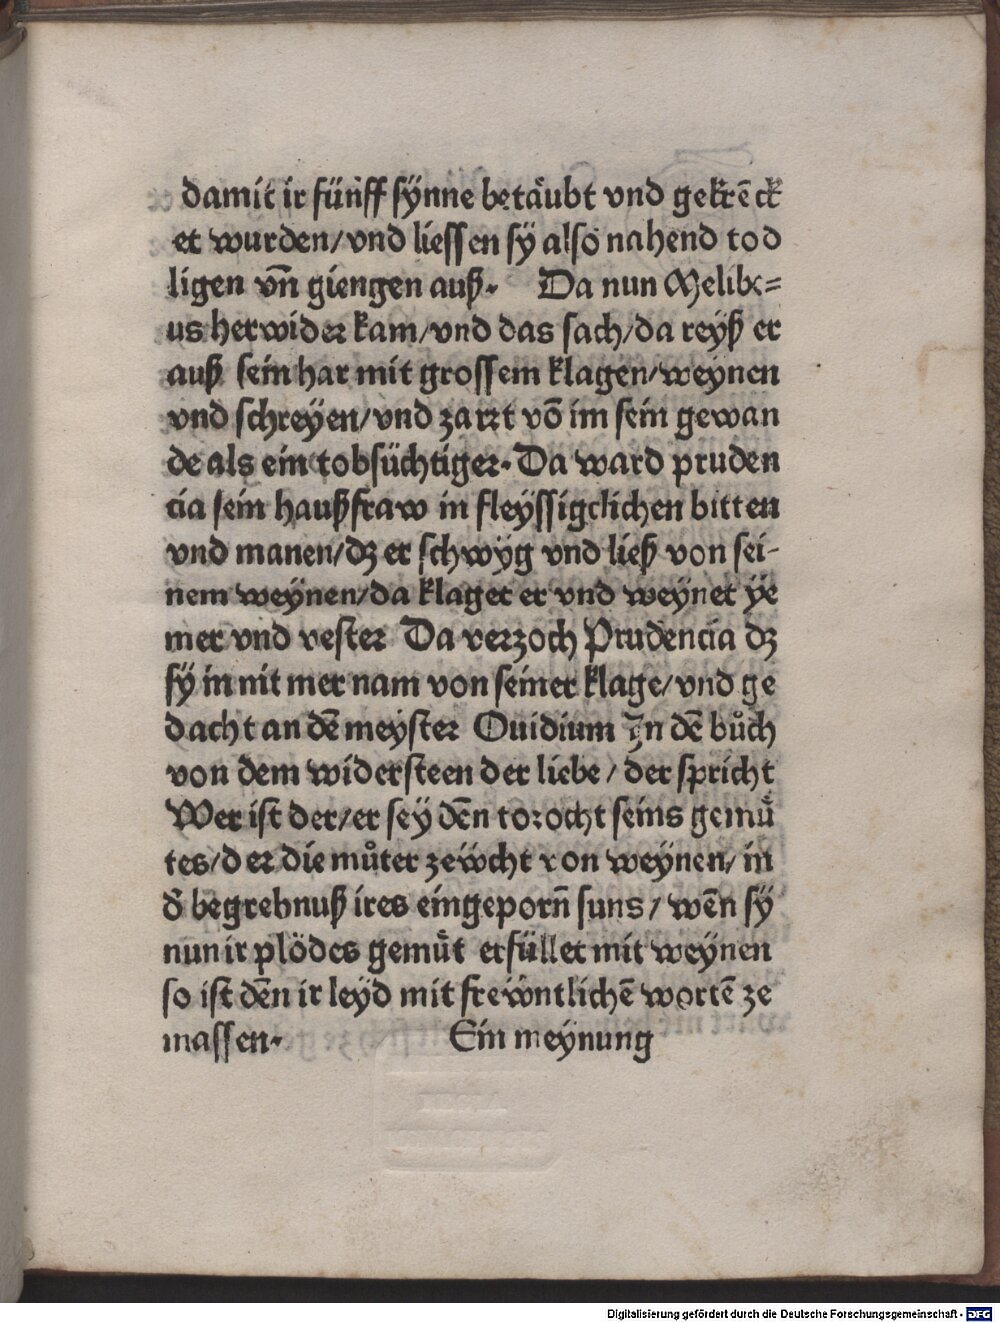 damit ir fünff sÿnne betäubt vnd gekrēck
et wurden/vnd liessen sÿ also nahend tod
ligen vn̄ giengen auß. Da nun Melibe=
us herwider kam/vnd das sach/da reyß er
auß sein har mit grossem klagen/weÿnen
vnd schreÿen/vnd zarzt vō im sein gewan
de als ein tobsüchtiger. Da ward pruden
cia sein haußfraw in fleÿssigclichen bitten
vnd manen/dz er schwÿg vnd ließ von sei-
nem weÿnen/da klaget er vnd weÿnet ÿe
mer vnd vester Da verzoch Prudencia dz
sÿ in nit mer nam von seiner klage/vnd ge
dacht an dē meÿster Ouidium In dē bůch
von dem widersteen der liebe/der spricht
Wer ist der/er seÿ dēn torocht seins gemů
tes/der die můter zeẅcht von weÿnen/in
d̄ begrebnuß ires eingeporn̄ suns/wēn sÿ
nun ir plödes gemůt erfüllet mit weÿnen
so ist dēn ir leÿd mit freẅntlichē wortē ze
massen. Ein meÿnung
Digitalisierung gefördert durch die Deutsche Forschungsgemeinschaft - DFG